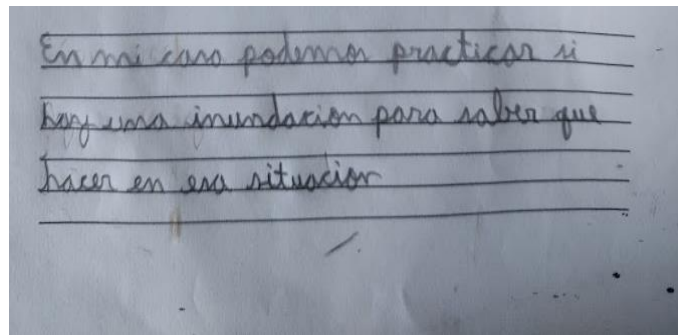 En mi caso podemos practicar si
hay una inundacion para saber que
hacer en esa situacion